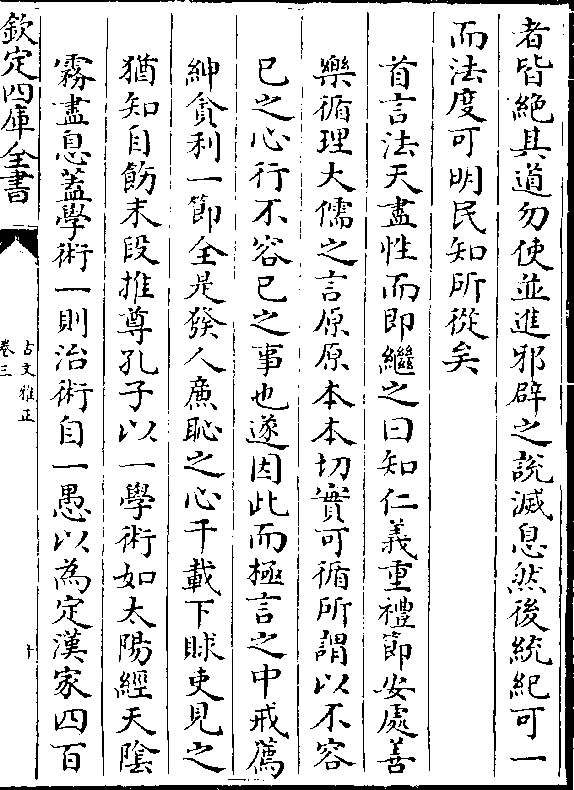 者皆絶其道勿使並進邪辟之説滅息然後統紀可一
而法度可明民知所從矣
首言法天盡性而即繼之曰知仁義重禮節安處善
樂循理大儒之言原原本本切實可循所謂以不容
已之心行不容已之事也遂因此而極言之中戒薦
紳貪利一節全是發人亷恥之心千載下賕吏見之
猶知自飭末段推尊孔子以一學術如太陽經天陰
霧盡息蓋學術一則治術自一愚以為定漢家四百
欽定四庫全書
古文雅正
卷三
十